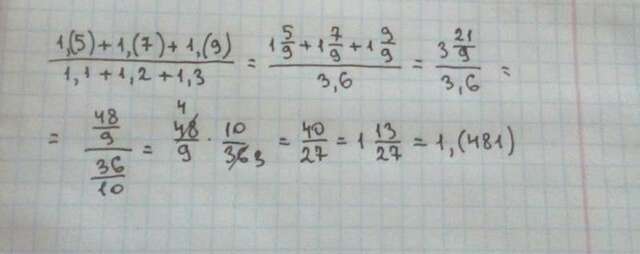 (1,(5) + 1,(7) + 1,(9)) / (1,1 + 1,2 + 1,3) = (1 5/9 + 1 7/9 + 1 9/9) / 3,6 = (3 21/9) / 3,6 =
= (48/9) / (36/10) = 48/9 4 · 10/36 3 = 40/27 = 1 13/27 = 1,(481)